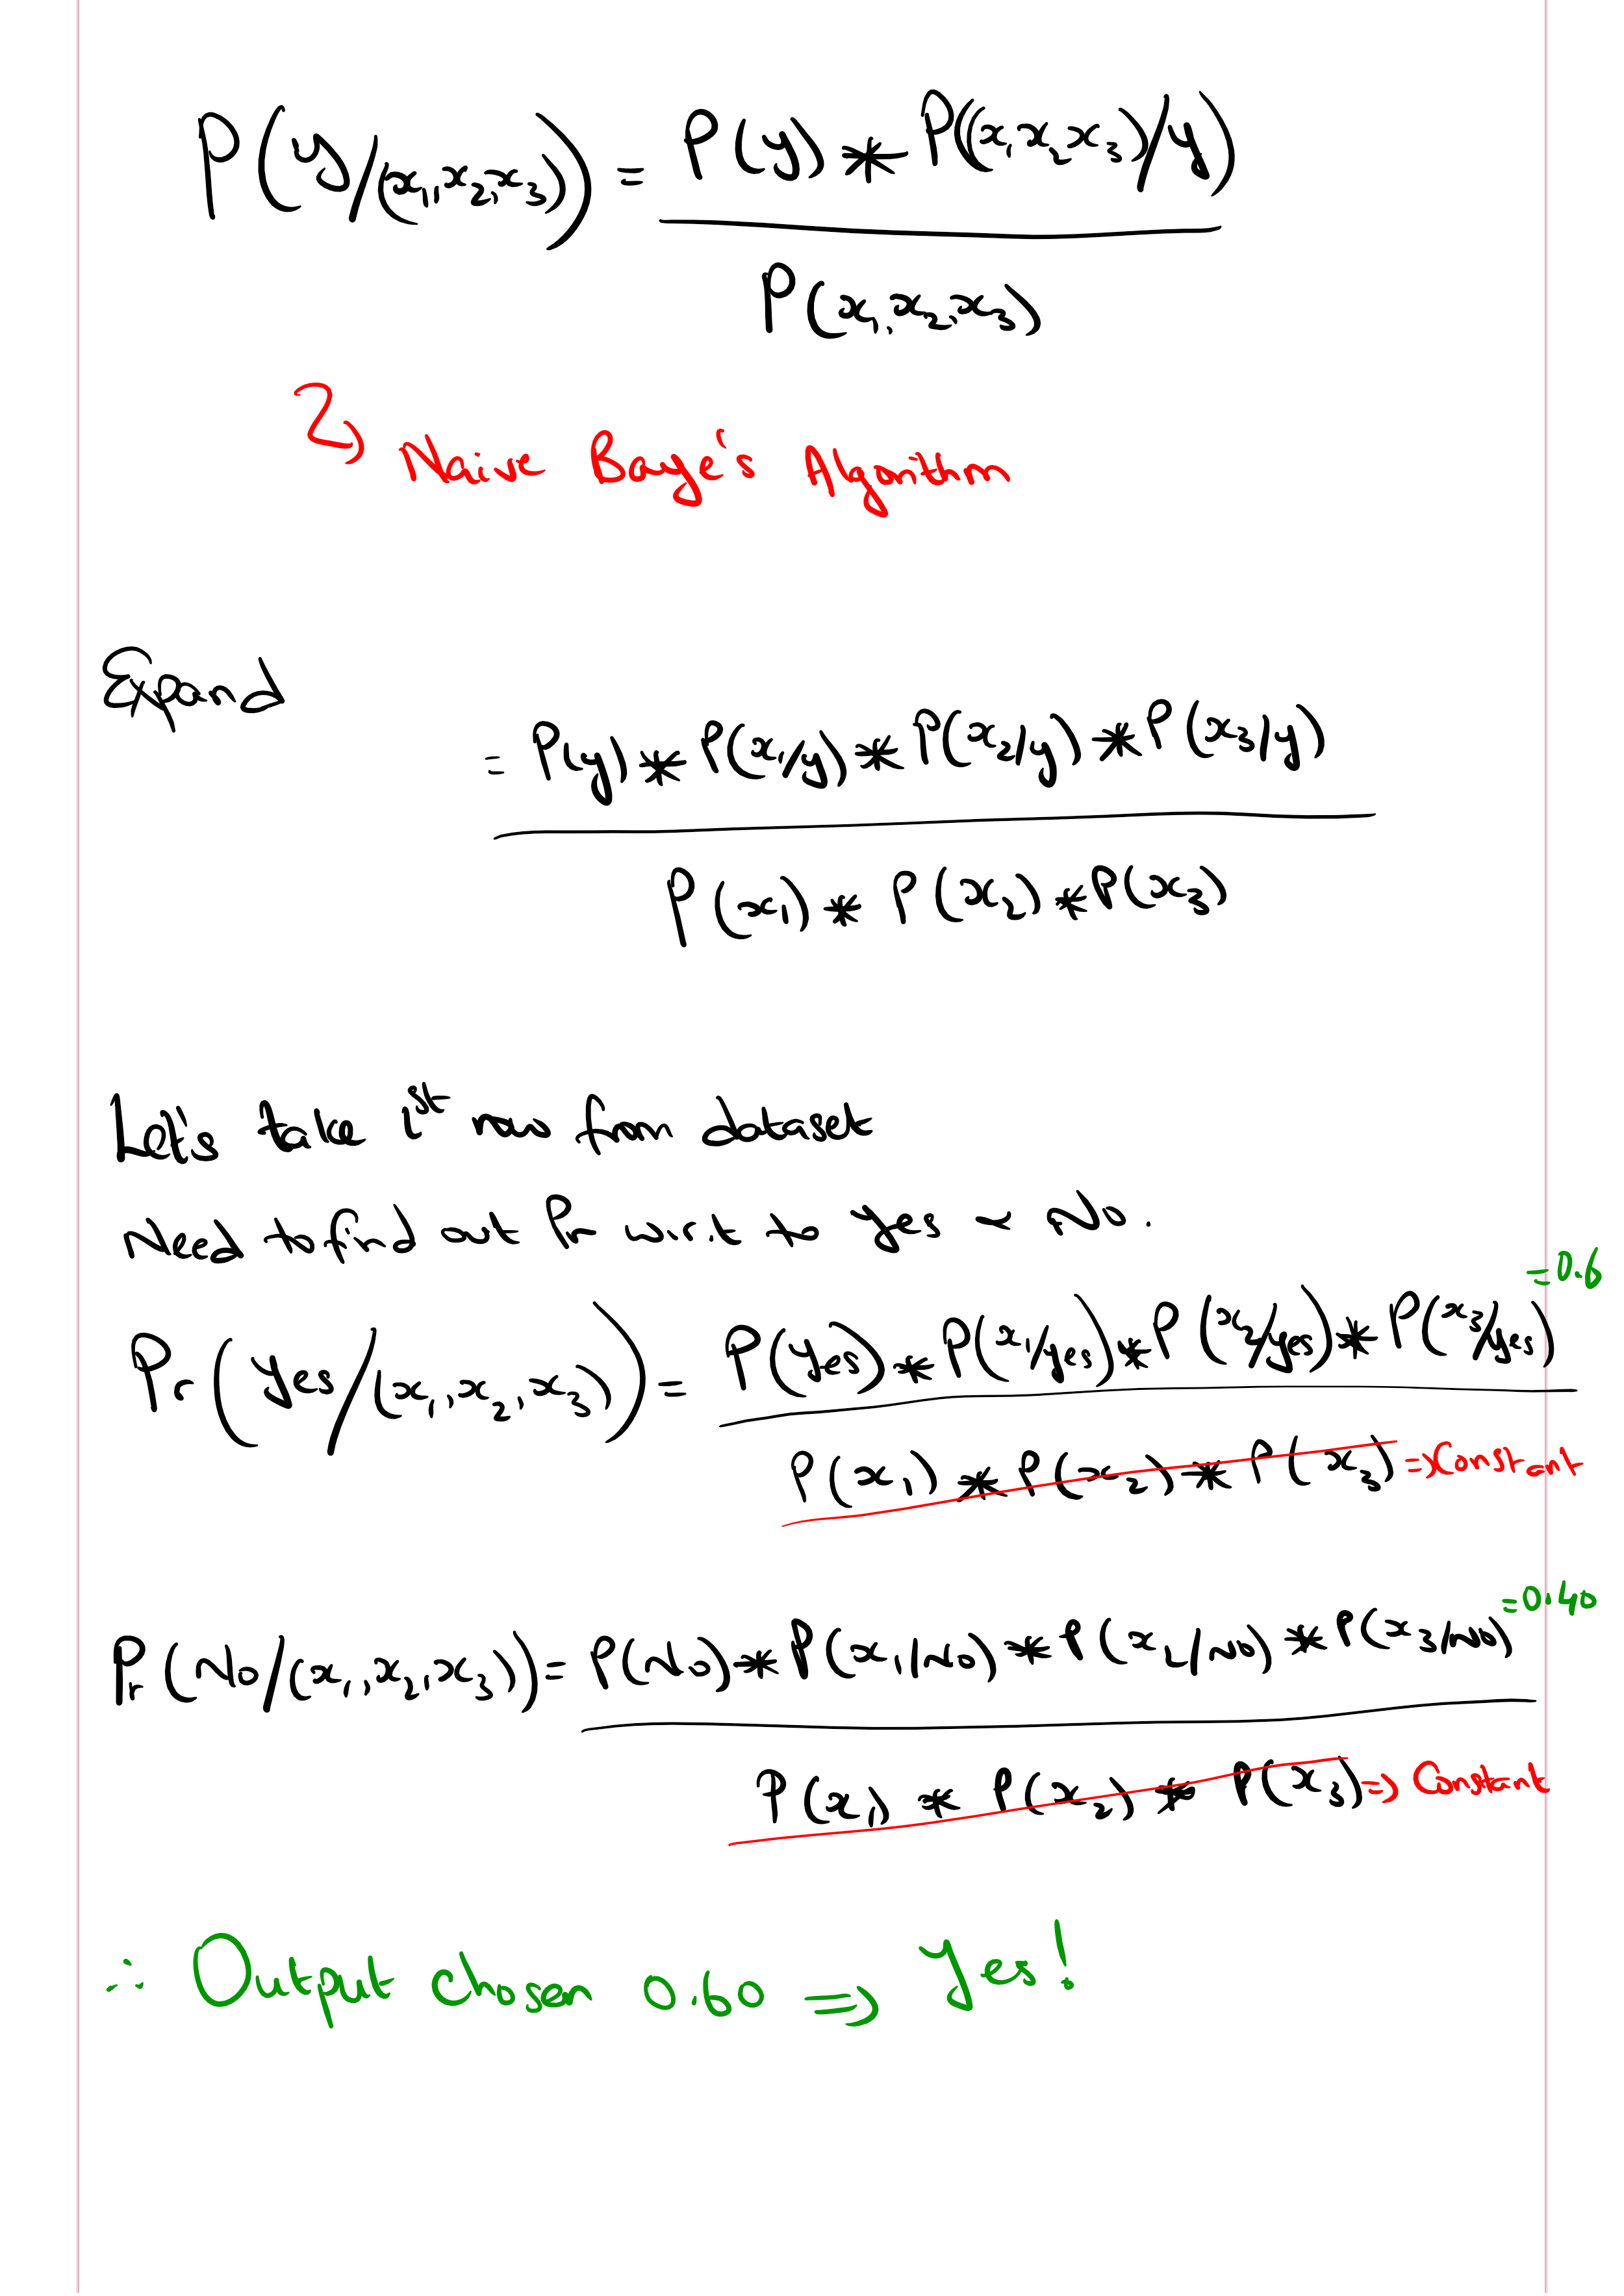 P(y/(x₁,x₂,x₃)) = P(y) * P((x₁,x₂,x₃)/y)
P(x₁,x₂,x₃)
Naive Baye's Algorithm
Expand
= P(y) * P(x₁/y) * P(x₂/y) * P(x₃/y)
P(x₁) * P(x₂) * P(x₃)
Let's take 1st row from dataset
Need to find out Pr w.r.t to Yes ~ No.
= 0.6
Pr(Yes/(x₁,x₂,x₃)) = P(Yes) * P(x₁/yes) * P(x₂/yes) * P(x₃/yes)
P(x₁) * P(x₂) * P(x₃) => Constant
= 0.40
Pr(No/(x₁,x₂,x₃)) = P(No) * P(x₁/No) * P(x₂/No) * P(x₃/No)
P(x₁) * P(x₂) * P(x₃) => Constant
∴ Output chosen 0.60 => Yes!